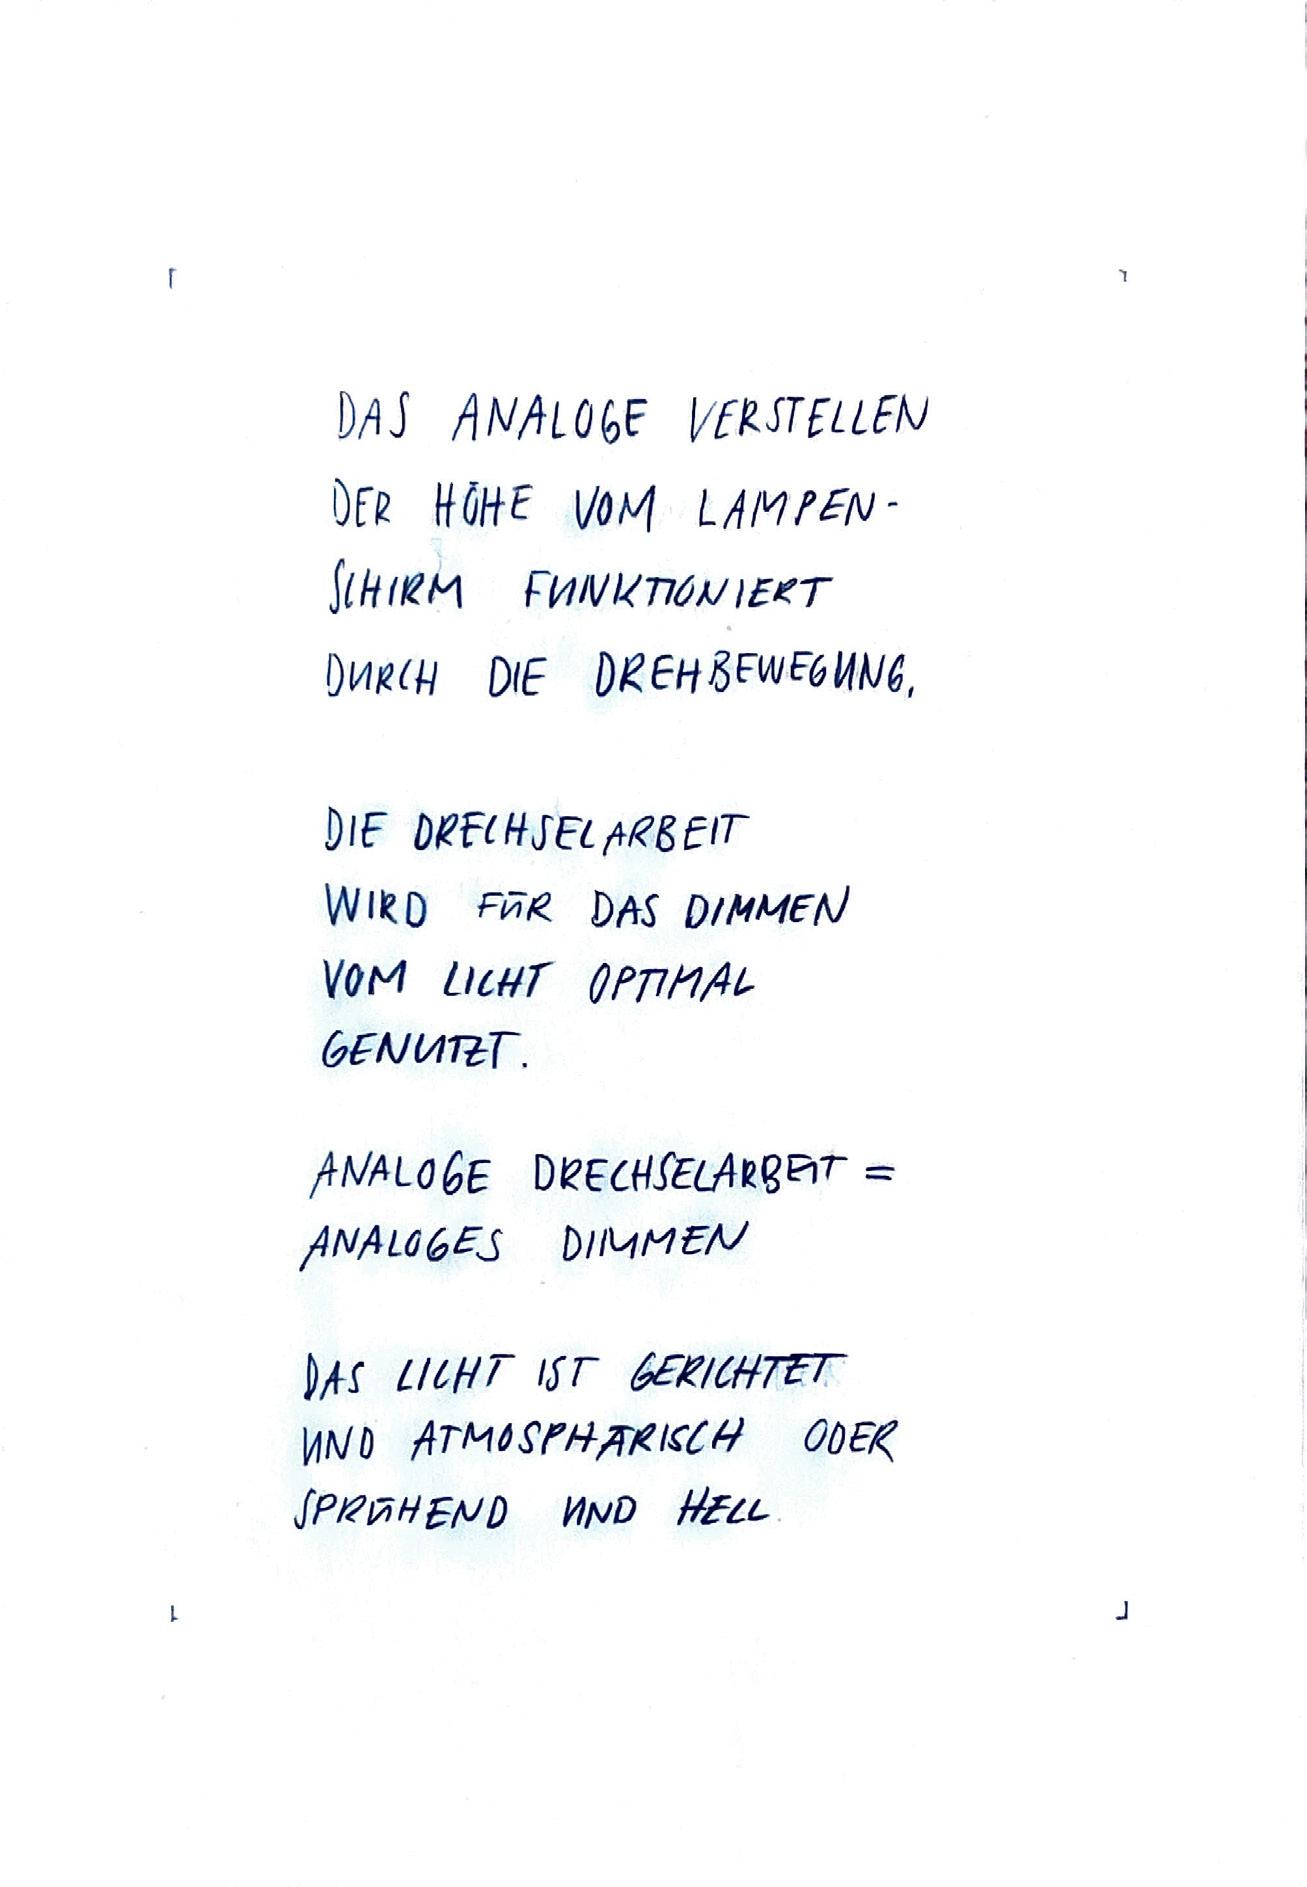 DAS ANALOGE VERSTELLEN
DER HÖHE VOM LAMPEN-
SCHIRM FUNKTIONIERT
DURCH DIE DREHBEWEGUNG.
DIE DRECHSELARBEIT
WIRD FÜR DAS DIMMEN
VOM LICHT OPTIMAL
GENUTZT.
ANALOGE DRECHSELARBEIT =
ANALOGES DIMMEN
DAS LICHT IST GERICHTET
UND ATMOSPHÄRISCH ODER
SPRÜHEND UND HELL.